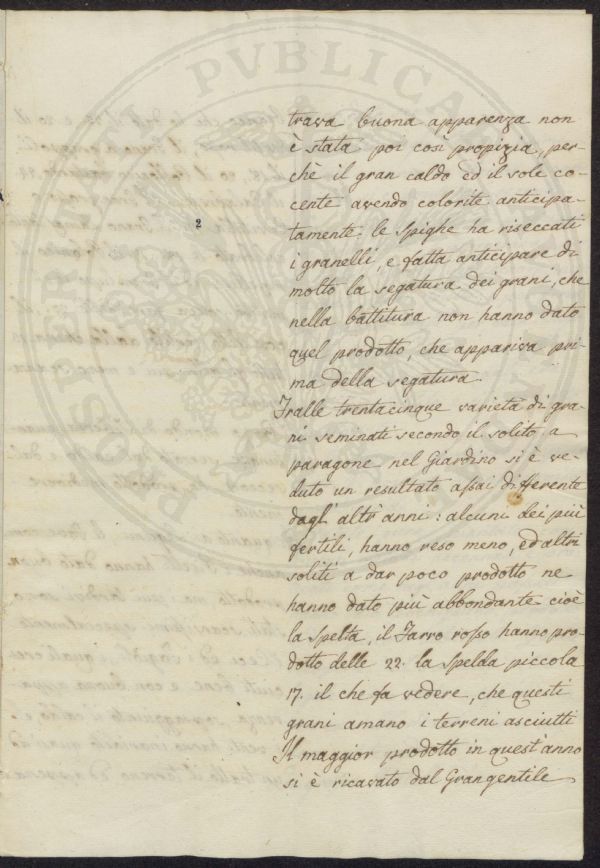 PROSPERITATI PUBLICAE
2
trava buona apparenza non
è stata poi così propizia, per-
chè il gran caldo ed il sole co-
cente avendo colorite anticipa-
tamente le Spighe ha riseccati
i granelli, e fatta anticipare di
molto la segatura dei grani, che
nella battitura non hanno dato
quel prodotto, che appariva pri-
ma della segatura.
Tralle trentacinque varietà di gra-
ni seminati secondo il solito a
paragone nel Giardino si è ve-
duto un resultato assai differente
dagl' altr' anni: alcuni dei più
fertili, hanno reso meno, ed altri
soliti a dar poco prodotto ne
hanno dato più abbondante cioè
la Spelta, il Farro rosso hanno pro-
dotto delle 22. la Spelda piccola
17. il che fa vedere, che questi
grani amano i terreni asciutti
Il maggior prodotto in quest'anno
si è ricavato dal Grangentile